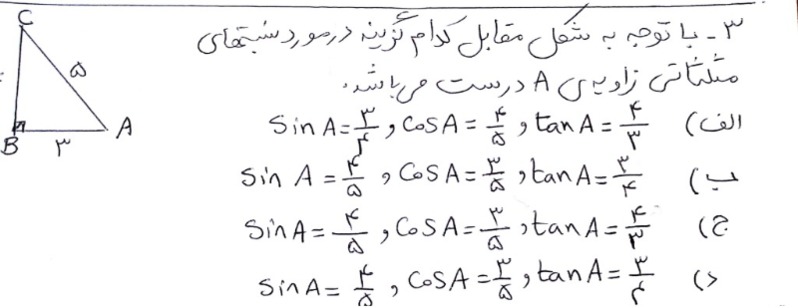 ۳ - با توجه به شکل مقابل کدام گزینه درمورد نسبتهای
مثلثاتی زاویه‌ی A درست می‌باشد.
الف) Sin A = ۳/۴ , Cos A = ۴/۵ , tan A = ۴/۳
ب) Sin A = ۴/۵ , Cos A = ۳/۵ , tan A = ۳/۴
ج) Sin A = ۴/۵ , Cos A = ۳/۵ , tan A = ۴/۳
د) Sin A = ۴/۵ , Cos A = ۳/۵ , tan A = ۳/۴
C
۵
B ۳ A